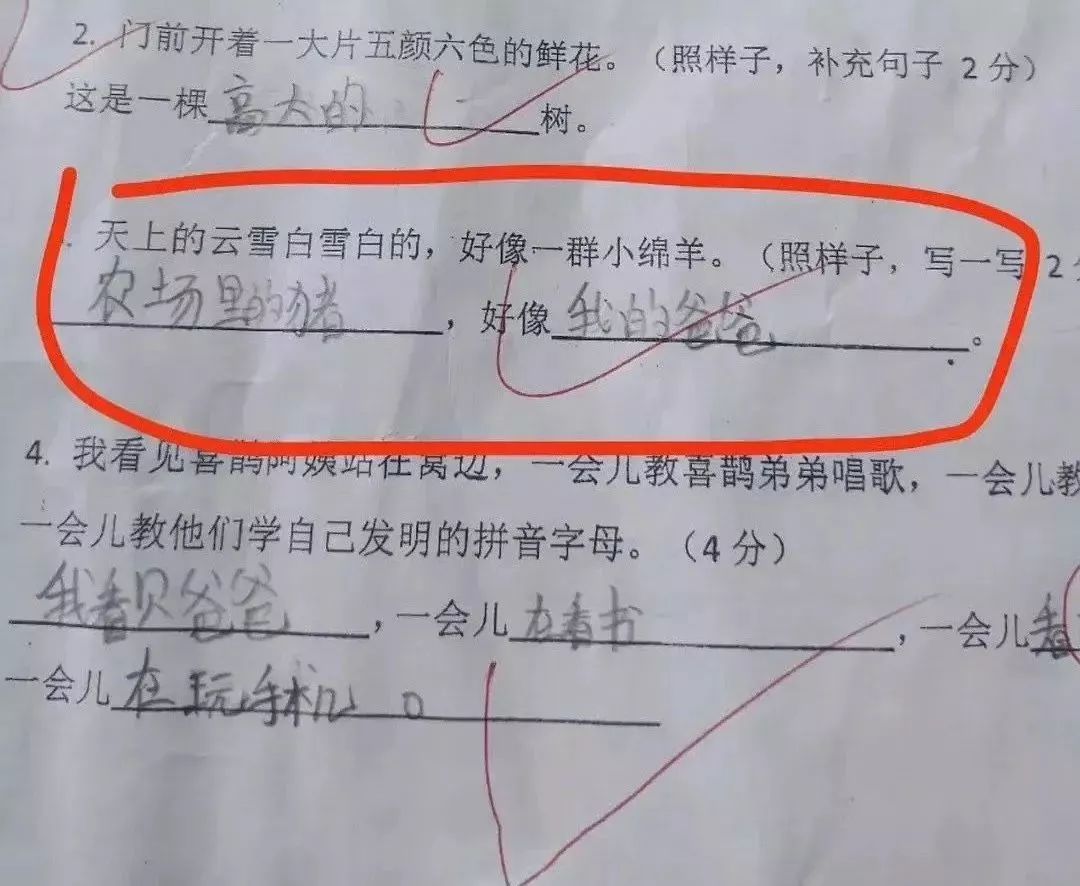 2. 门前开着一大片五颜六色的鲜花。（照样子，补充句子 2分）
这是一棵高大的树。
. 天上的云雪白雪白的，好像一群小绵羊。（照样子，写一写 2
农场里的猪，好像我的爸爸。
4. 我看见喜鹊阿姨站在窝边，一会儿教喜鹊弟弟唱歌，一会儿教
一会儿教他们学自己发明的拼音字母。（4分）
我看见爸爸，一会儿在看书，一会儿看
一会儿在玩手机。